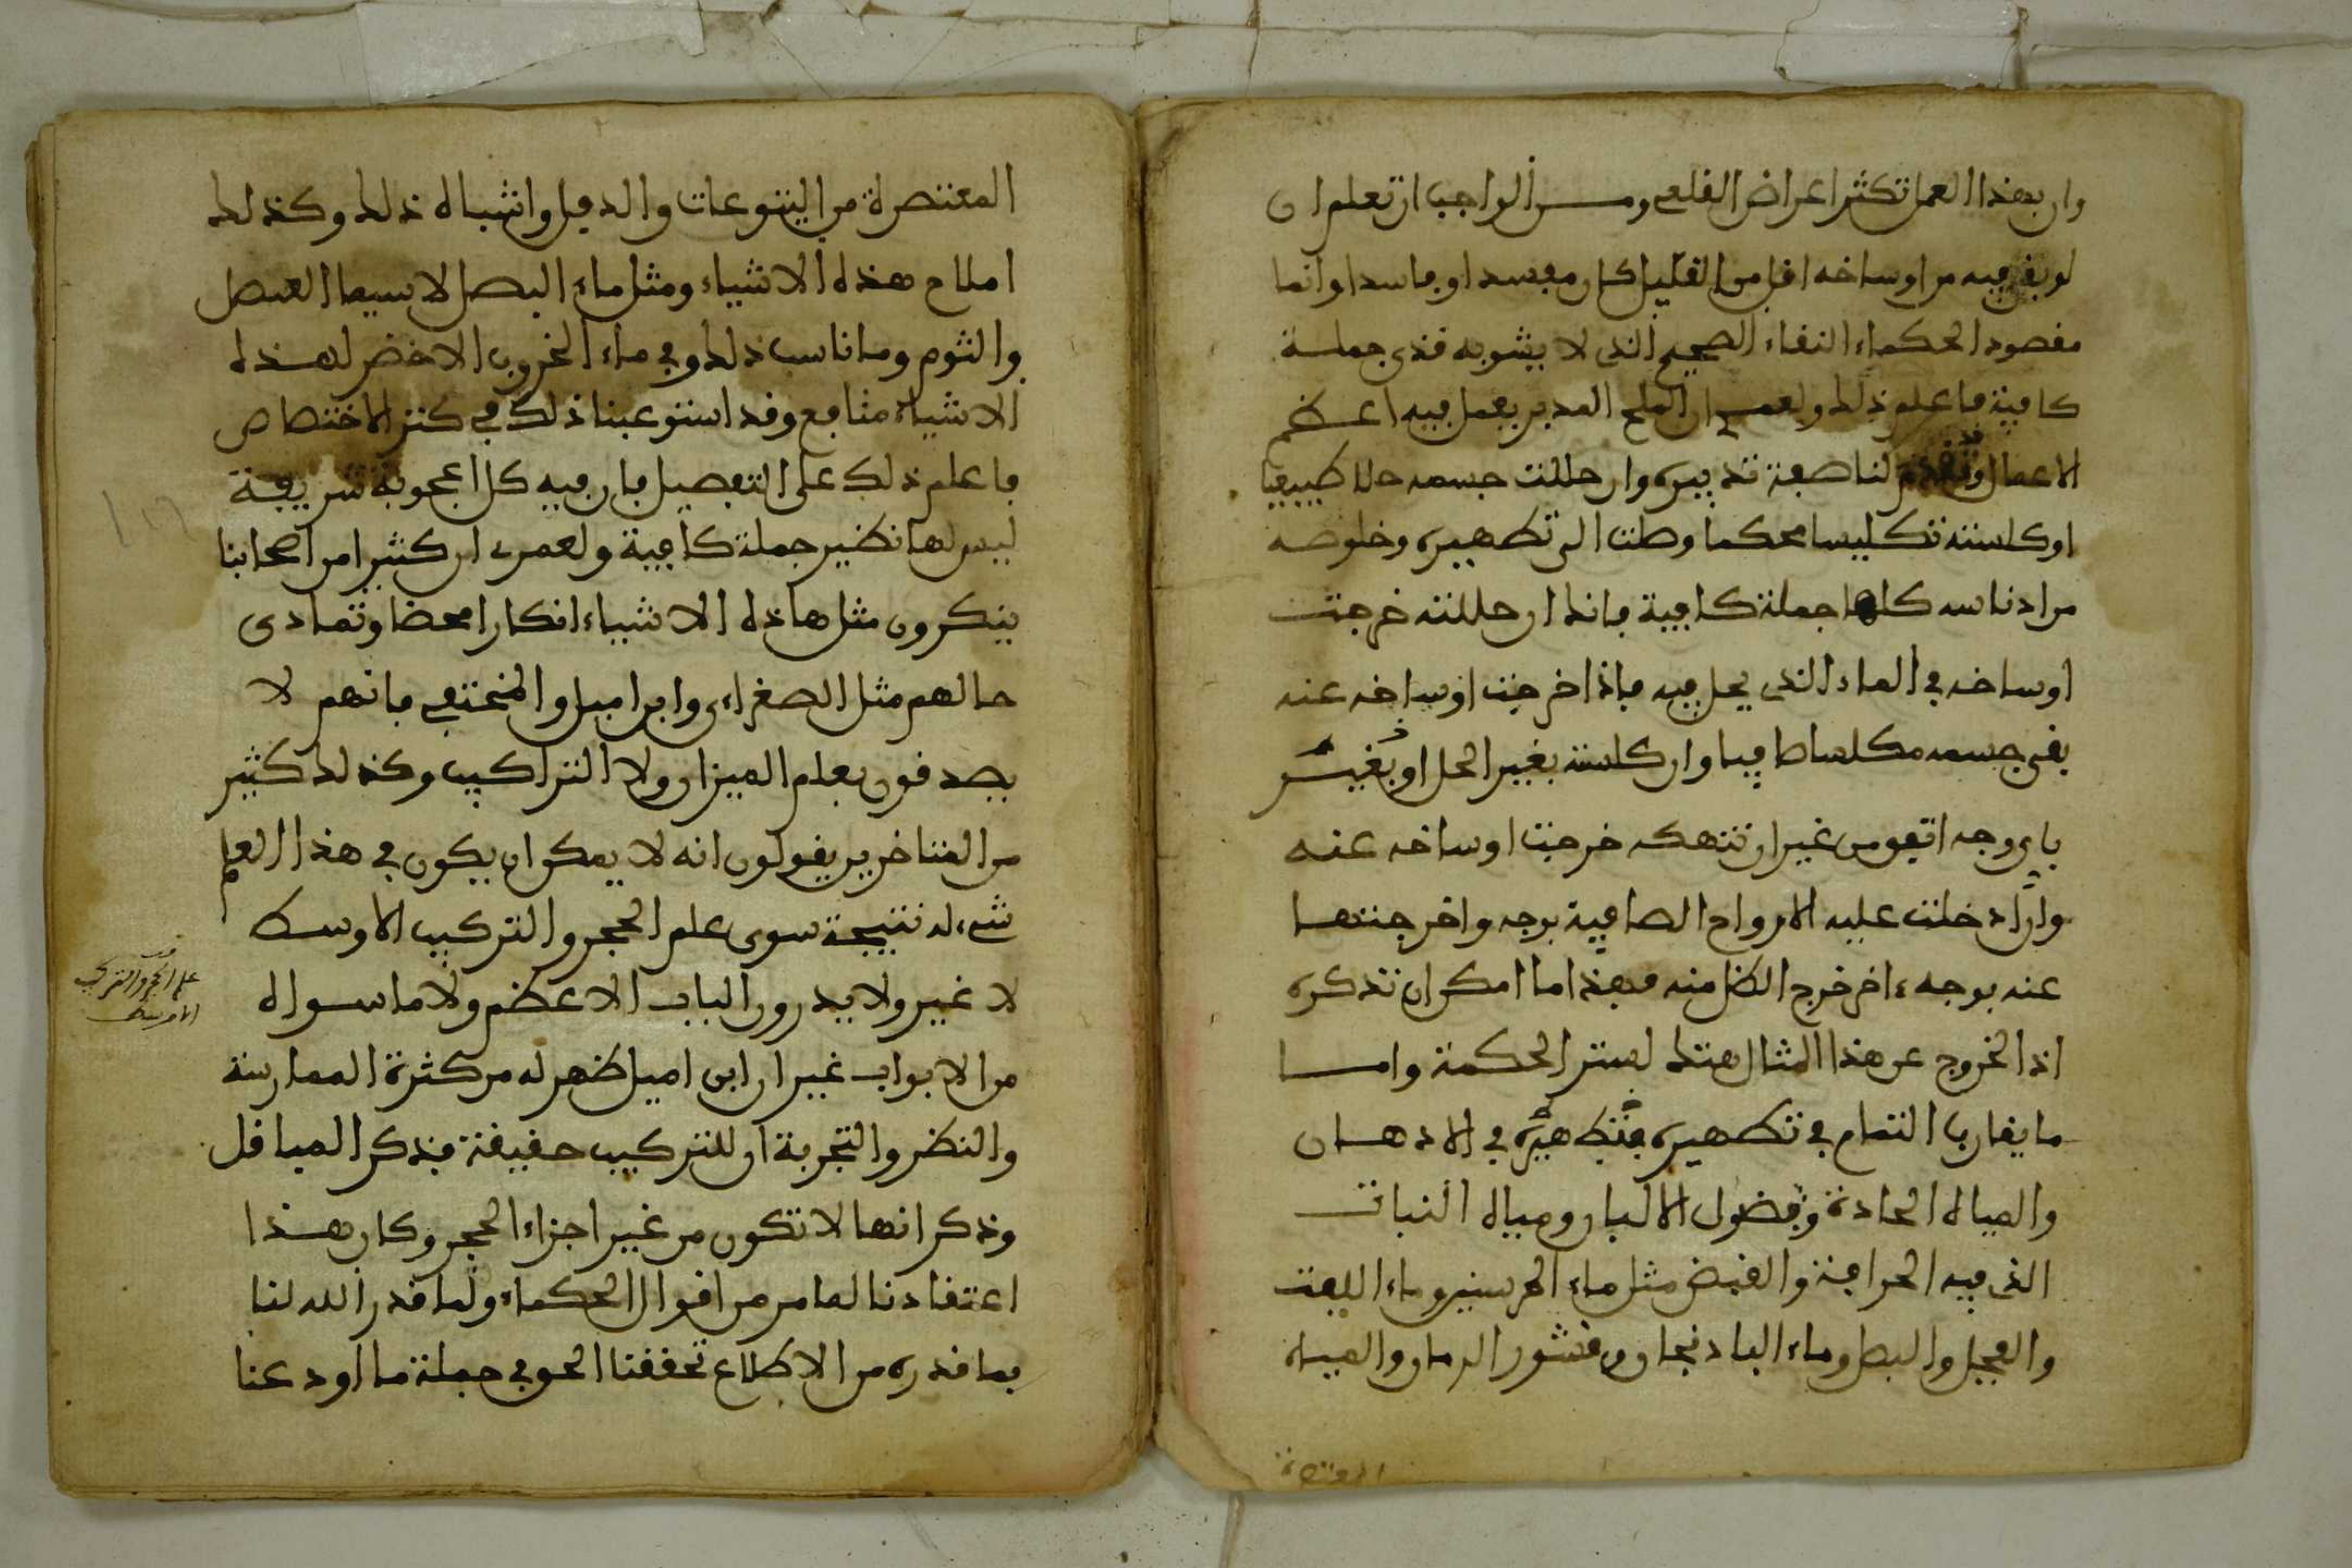 وان بهذا العمل تكثر اعراض القلعي ومن الواجب ان تعلم ان
لو بقي فيه من اوساخه اقل من القليل كان مفسدا وفاسدا وانما
مقصود الحكماء النقاء الصحيح الذي لا يشوبه قذى جملة
كافية فاعلم ذلك ولعمري ان الملح المدبر يعمل فيه اعظم
الاعمال وقد تقدم لنا صفة تدبيره وان حللت جسمه حلا طبيعيا
او كلسته تكليسا محكما وصلت الى تطهيره وخلوصه
من ادناسه كلها جملة كافية فانك ان حللته خرجت
اوساخه في الماء الذي يحل فيه فاذا خرجت اوساخه عنه
بقي جسمه مكلسا صافيا وان كلسته بغير الحل او بغيره
باي وجه اتفق من غير ان تنهكه خرجت اوساخه عنه
وان ادخلت عليه الارواح الصافية بوجه واخرجتها
عنه بوجه ءاخر خرج الكل منه فهذا ما امكن ان نذكره
اذ الخروج عن هذا المثال هتك لستر الحكمة واما
ما يقارب التمام في تطهيره فتطهيره في الادهان
والمياه الحادة وفضول الالبان ومياه النبات
الذي فيه الحرافة والقبض مثل ماء الحرسنين وماء اللفت
والفجل والبصل وماء الباذنجان وقشور الرمان والمياه
المعتصرة
المعتصرة من اليتوعات والدفل واشباه ذلك وكذلك
املاح هذه الاشياء ومثل ماء البصل لا سيما العنصل
والثوم وما ناسب ذلك وفي ماء الخروب الاخضر لهذه
الاشياء منافع وقد استوعبنا ذلك في كنز الاختصاص
فاعلم ذلك على التفصيل فان فيه كل اعجوبة شريفة
ليس لها نظير جملة كافية ولعمري ان كثيرا من اصحابنا
ينكرون مثل هاذه الاشياء انكارا محضا وتمادى
حالهم مثل الصغراءي وابن اميل والمنحتفي فانهم لا
يصدقون بعلم الميزان ولا التراكيب وكذلك كثير
من المتاخرين يقولون انه لا يمكن ان يكون في هذا العلم
شيء له نتيجة سوى علم الحجر والتركيب الاوسط
لا غير ولا يدرون الباب الاعظم ولا ما سواه
من الابواب غير ان ابن اميل ظهر له من كثرة الممارسة
والنظر والتجربة ان للتركيب حقيقة فذكر الميافل
وذكر انها لا تكون من غير اجزاء الحجر وكان هذا
اعتقادنا لما مر من اقوال الحكماء ولما قدر الله لنا
بما قدره من الاطلاع تحققنا الحق في جملة ما اودعنا
علم الحجر والتركيب
الاوسط